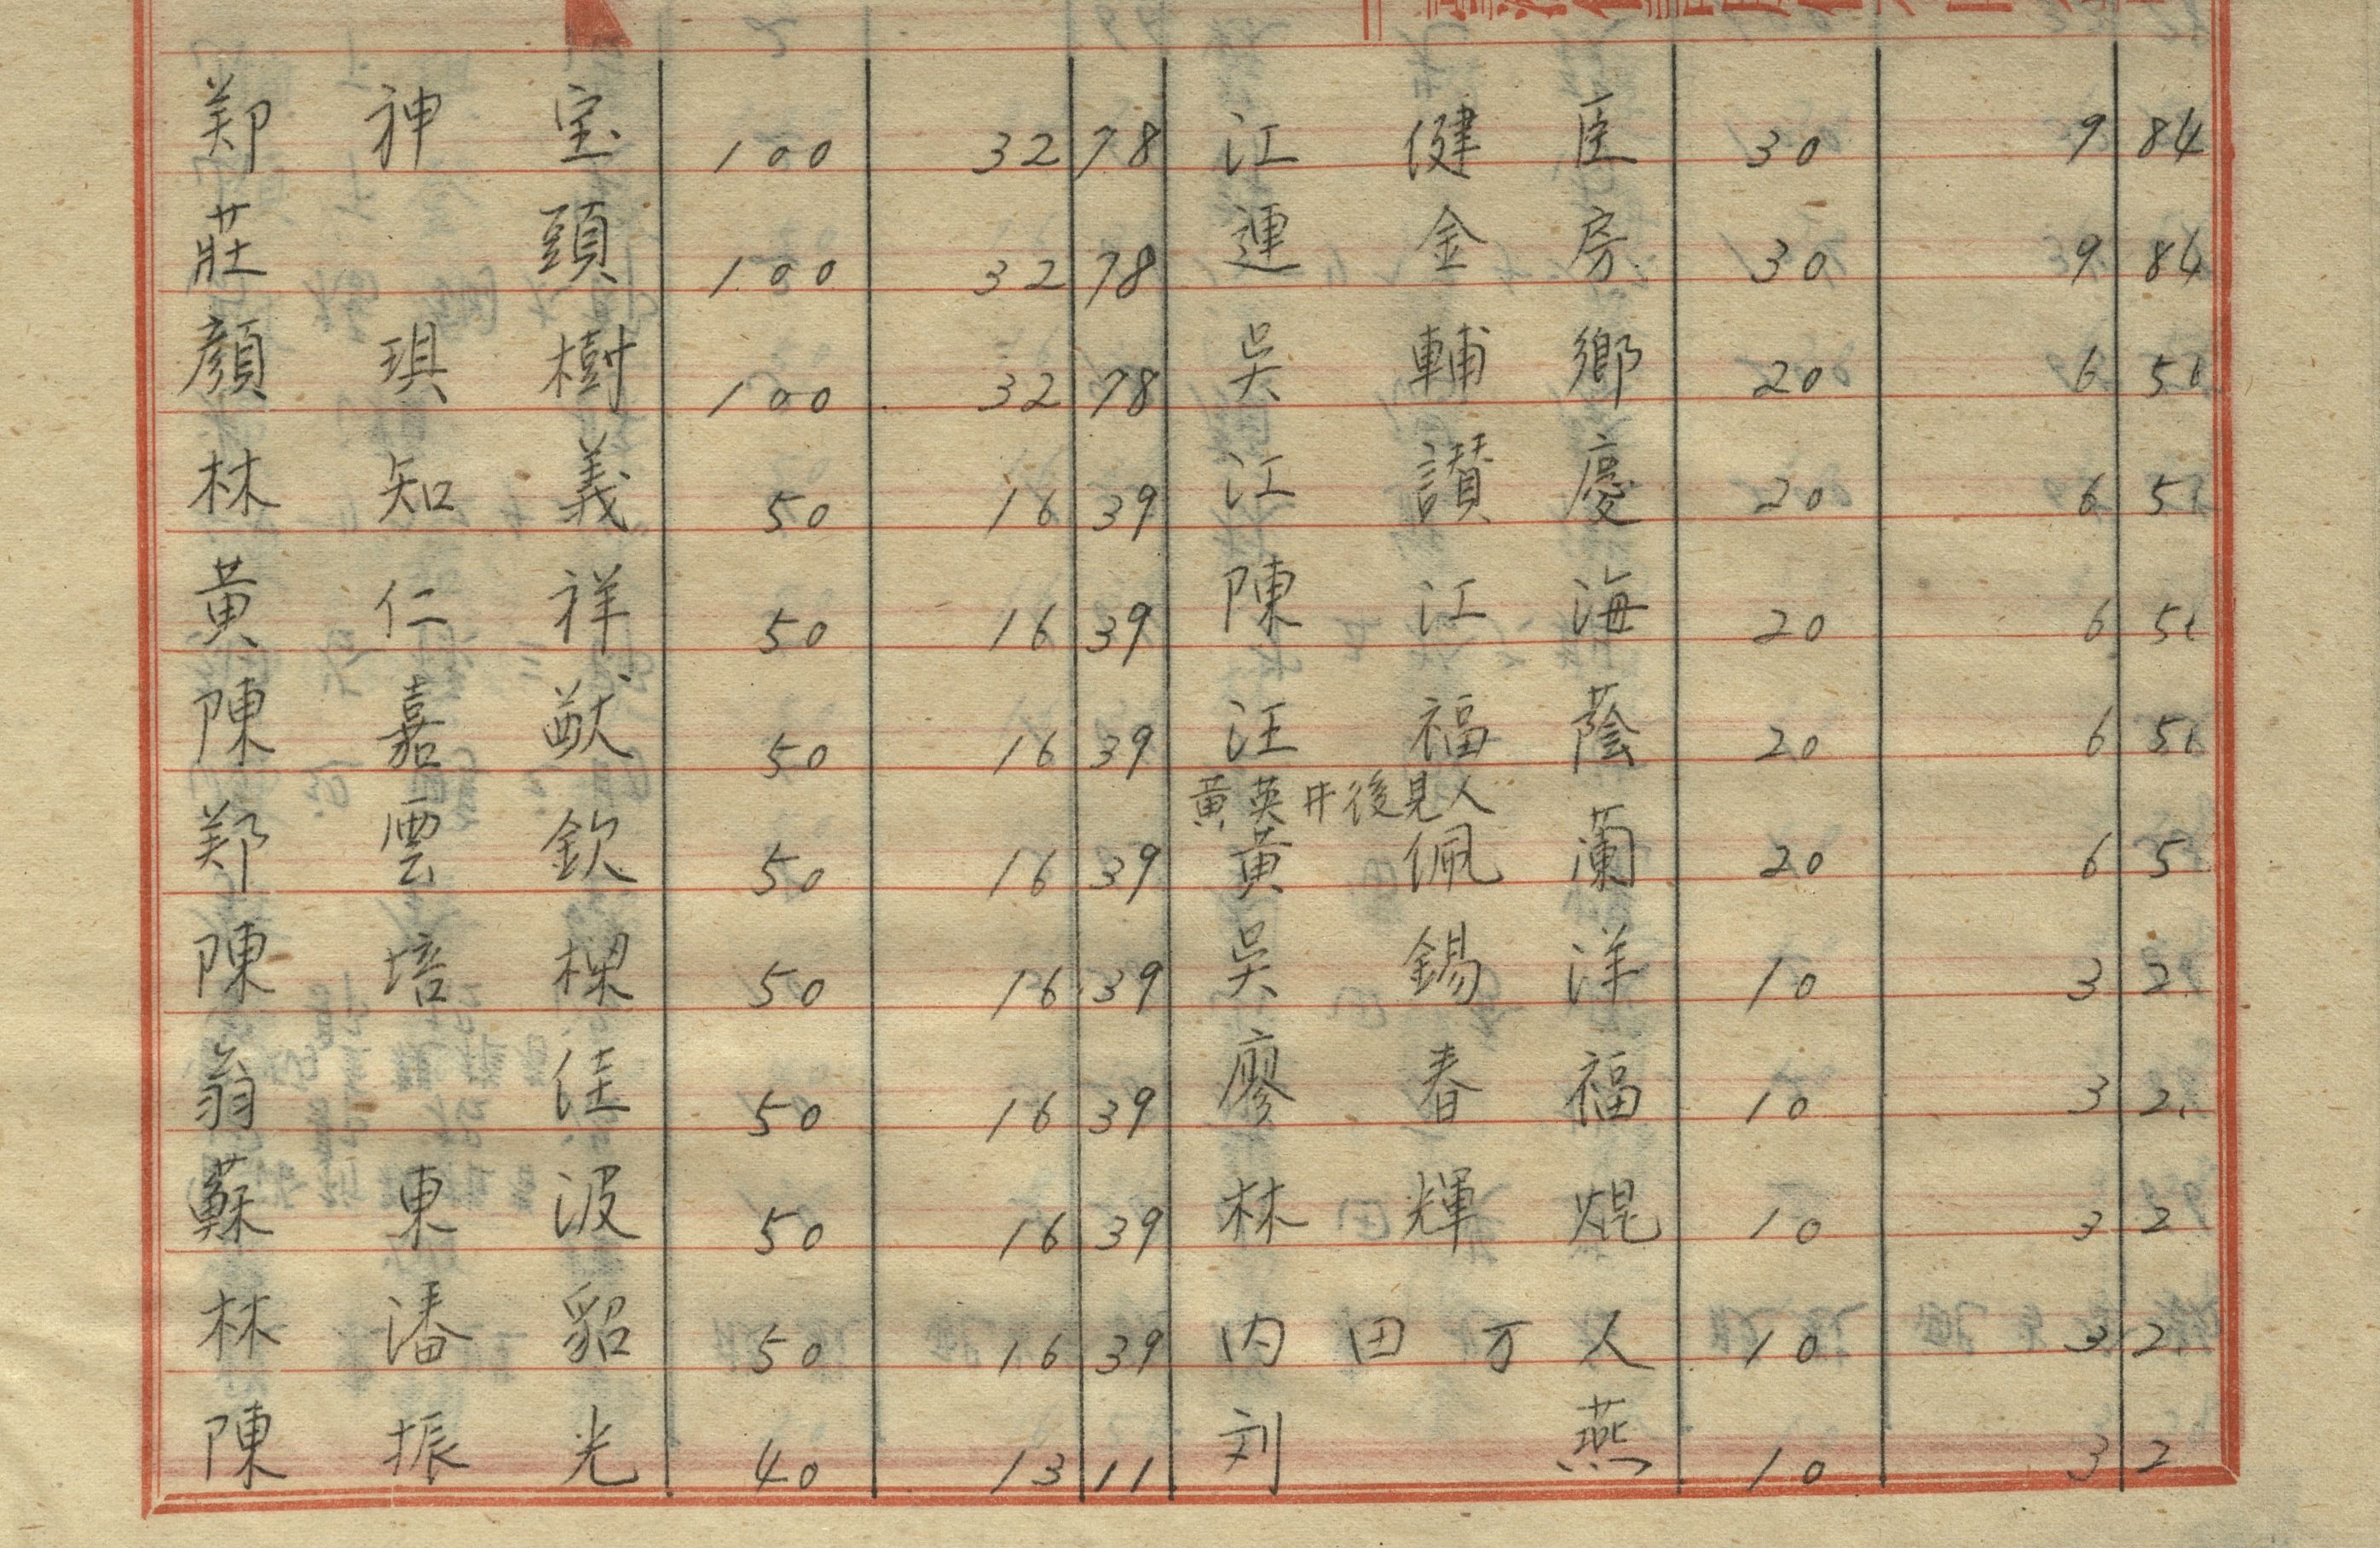 郑神宝 100 32 78 江健臣 30 9 84
莊頭 100 32 78 連金房 30 9 84
顏琪樹 100 32 78 吳輔鄉 20 6 56
林知義 50 16 39 江讃慶 20 6 5
黃仁祥 50 16 39 陳江海 20 6 5
陳嘉猷 50 16 39 汪福蔭 20 6 56
黃英井後見人
郑雲欽 50 16 39 黃佩蘭 20 6 5
陳培樑 50 16 39 吳錫洋 10 3 2
翁佳 50 16 39 廖春福 10 3 2
蘇東波 50 16 39 林輝焜 10 3 2
林潘貂 50 16 39 内田万人 10 3 2
陳振光 40 13 11 刘燕 10 3 2